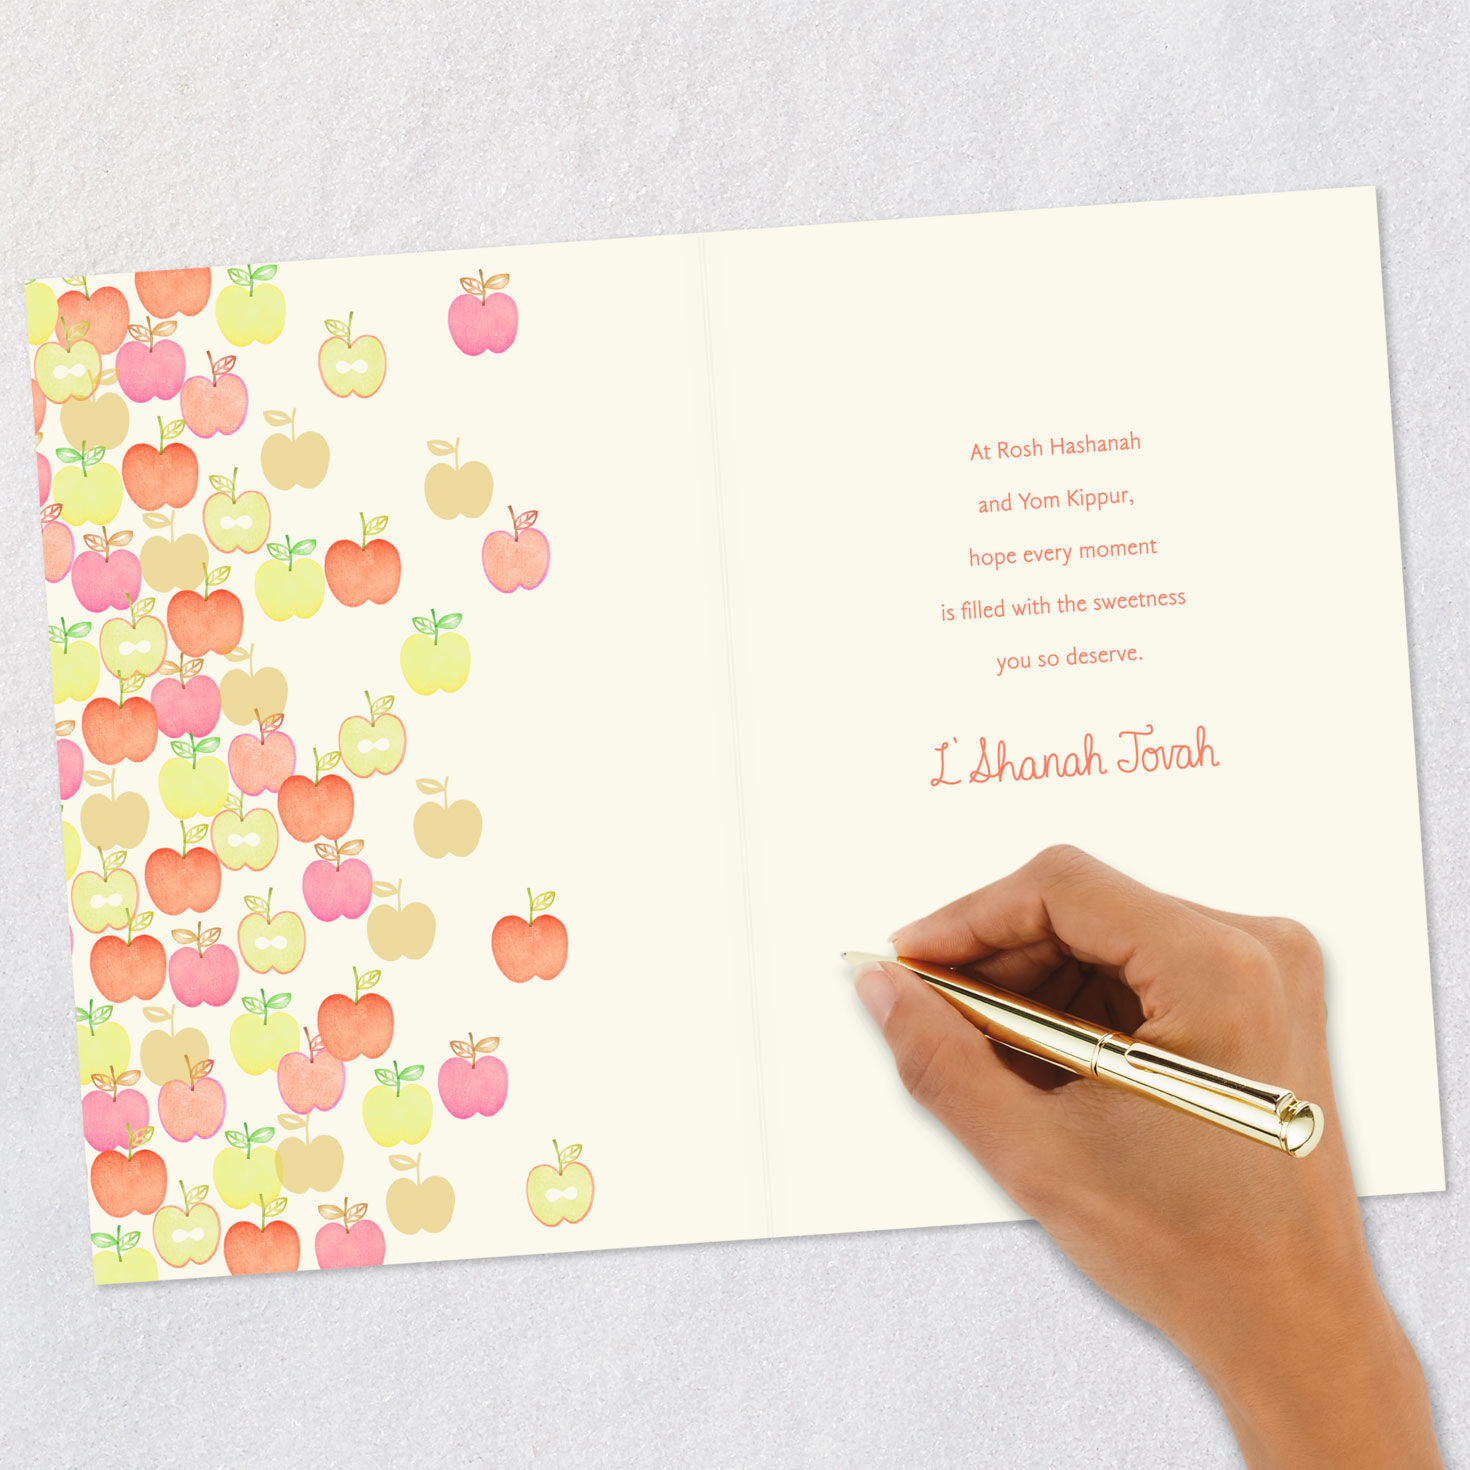 At Rosh Hashanah
and Yom Kippur,
hope every moment
is filled with the sweetness
you so deserve.
L' Shanah Tovah